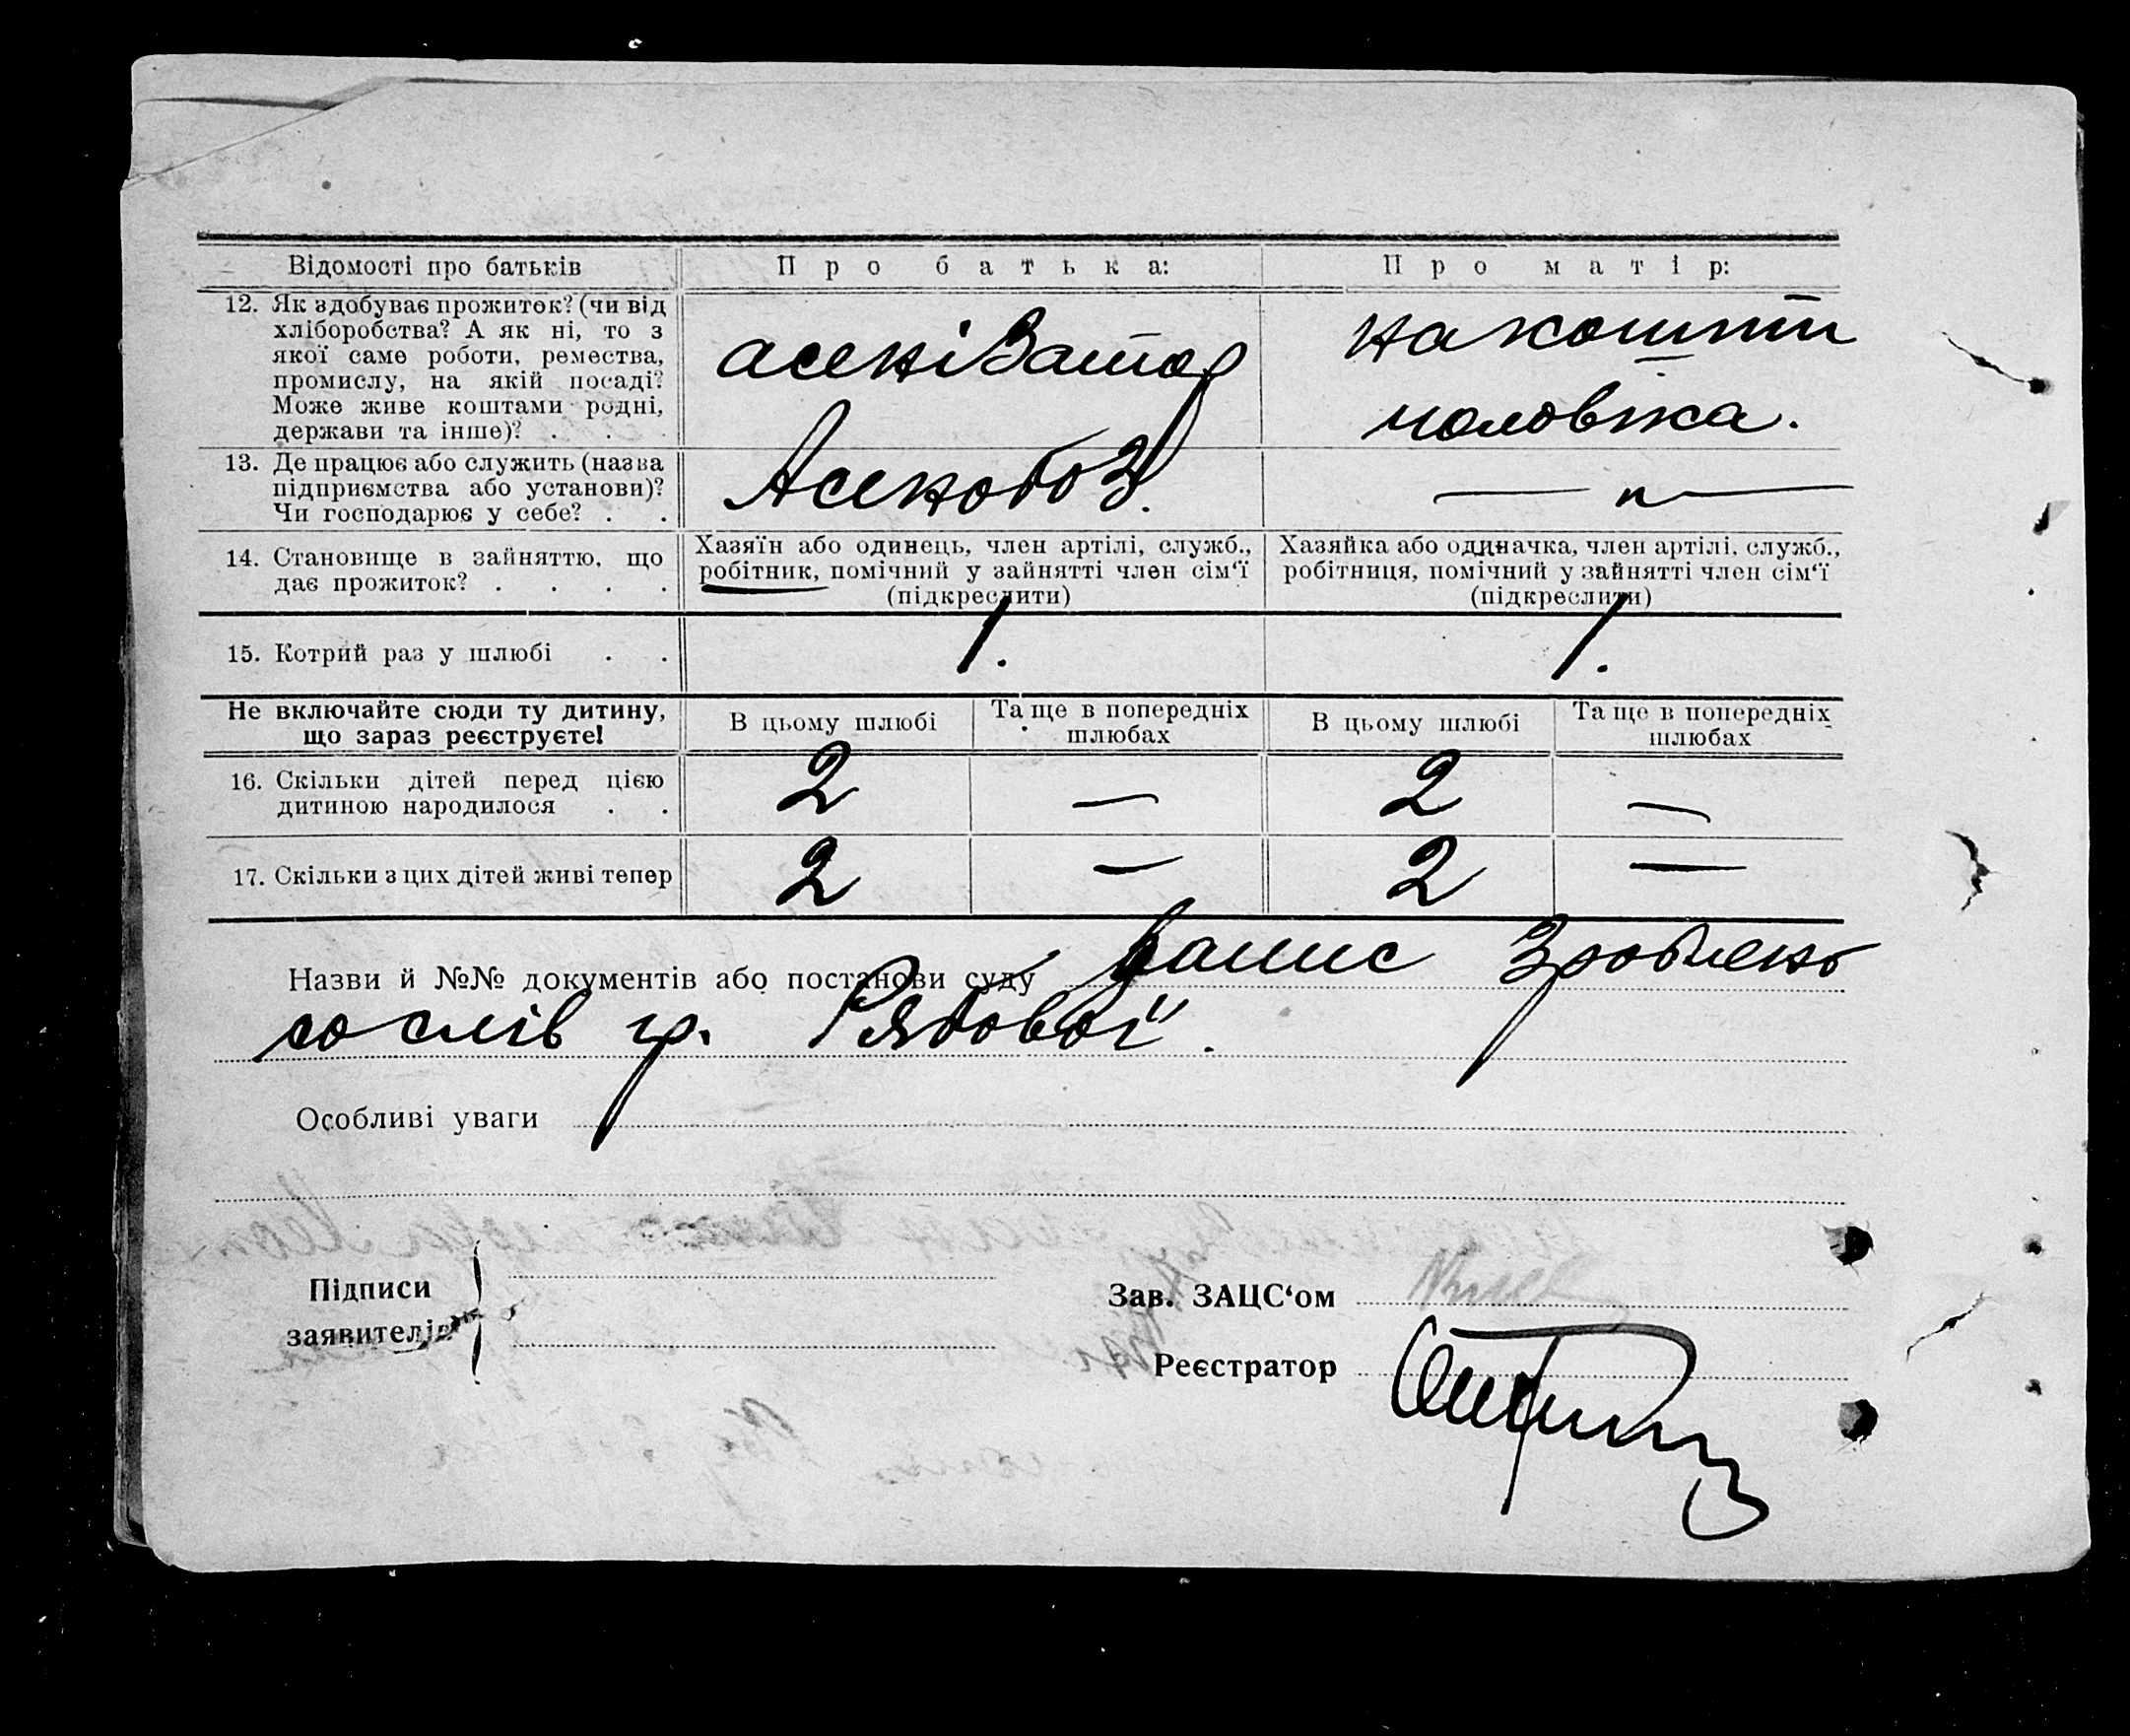 Відомості про батьків
Про батька:
Про матір:
12. Як здобуває прожиток? (чи від
хліборобства? А як ні, то з
якої саме роботи, ремества,
промислу, на якій посаді?
Може живе коштами родні,
держави та інше)? . .
асенізатор
на кошти
чоловіка.
13. Де працює або служить (назва
підприємства або установи)?
Чи господарює у себе? . .
Асенобоз.
— " —
14. Становище в зайняттю, що
дає прожиток? . . . .
Хазяїн або одинець, член артілі, служб.,
робітник, помічний у зайнятті член сім‘ї
(підкреслити)
Хазяйка або одиначка, член артілі, служб.,
робітниця, помічний у зайнятті член сім‘ї
(підкреслити)
15. Котрий раз у шлюбі . .
1.
1.
Не включайте сюди ту дитину,
що зараз реєструєте!
В цьому шлюбі
Та ще в попередніх
шлюбах
В цьому шлюбі
Та ще в попередніх
шлюбах
16. Скільки дітей перед цією
дитиною народилося . .
2
—
2
—
17. Скільки з цих дітей живі тепер
2
—
2
—
Назви й №№ документів або постанови суду Запис зроблено
со слів гр. Рябової.
Особливі уваги
Підписи
заявителів
Зав. ЗАЦС‘ом
Реєстратор